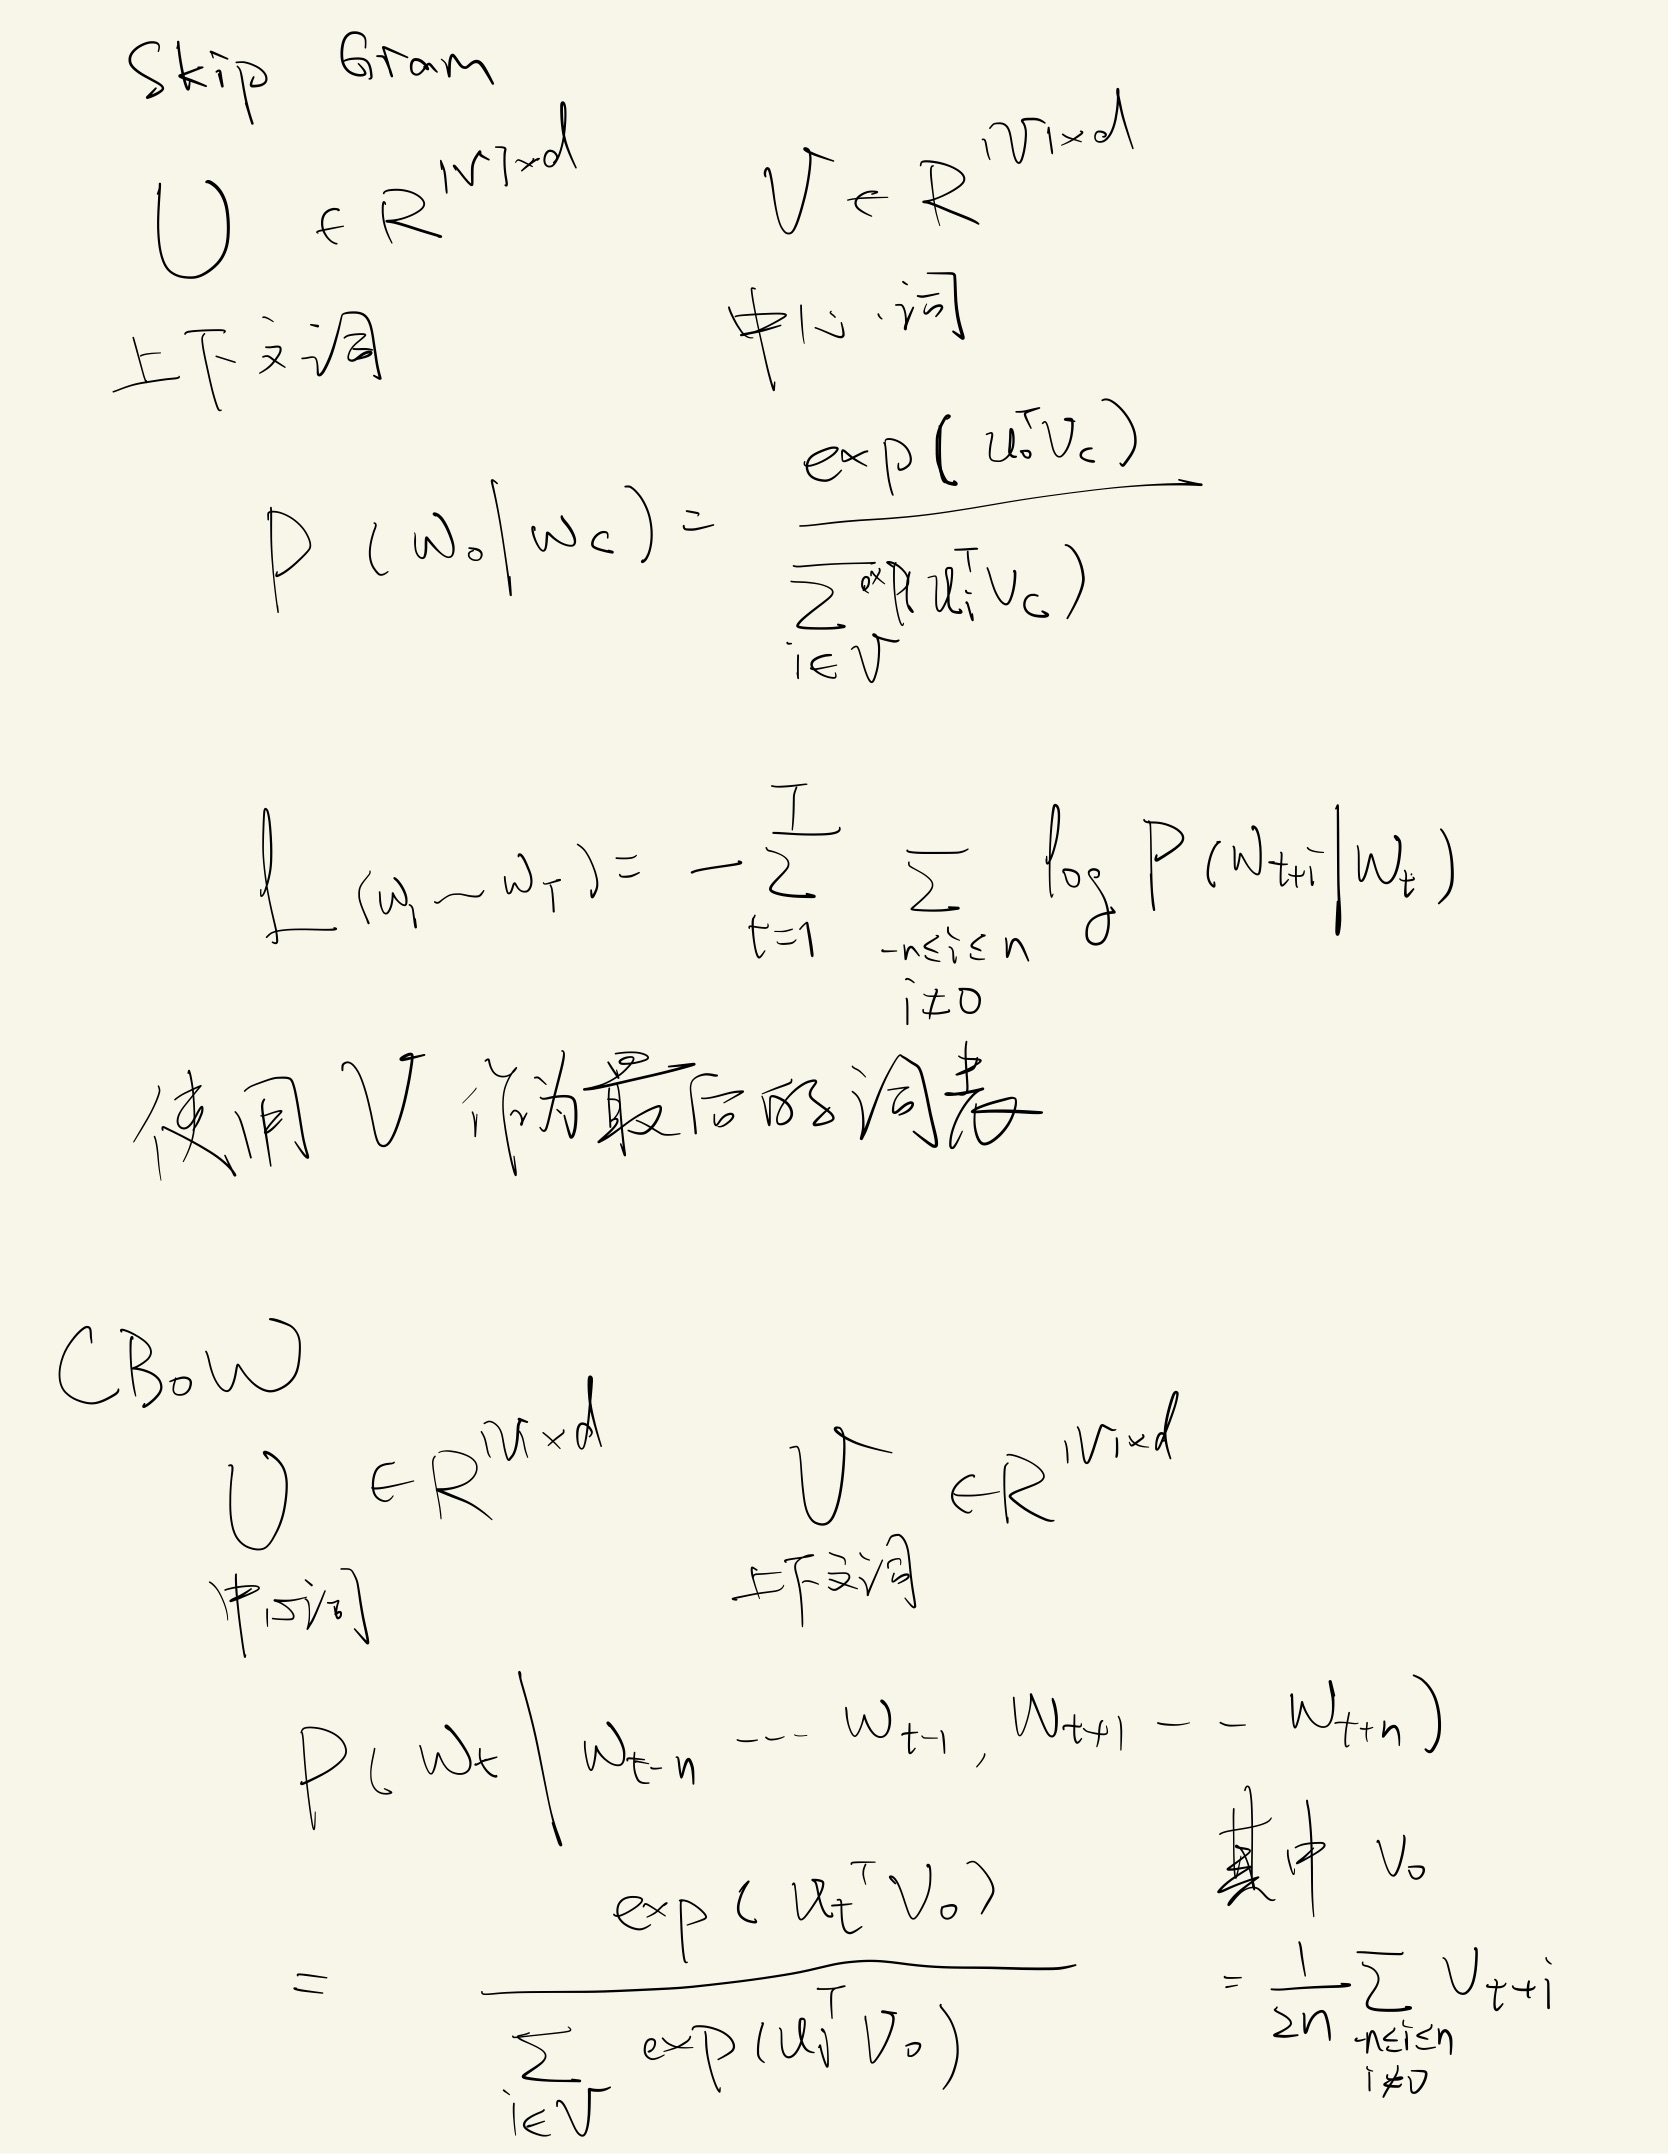 Skip Gram
U ∈ R^{|V|×d} V ∈ R^{|V|×d}
上下文词 中心词
P(w_o|w_c) = exp(u_o^T v_c) / Σ_{i∈V} exp(u_i^T v_c)
L(w_1~w_T) = -Σ_{t=1}^{T} Σ_{-n≤i≤n, i≠0} log P(w_{t+i}|w_t)
使用 V 作为最后的词表
CBOW
U ∈ R^{|V|×d} V ∈ R^{|V|×d}
中心词 上下文词
P(w_t | w_{t-n} --- w_{t-1}, w_{t+1} -- w_{t+n})
= exp(u_t^T v_o) / Σ_{i∈V} exp(u_i^T v_o)
其中 v_o
= 1/2n Σ_{-n≤i≤n, i≠0} v_{t+i}